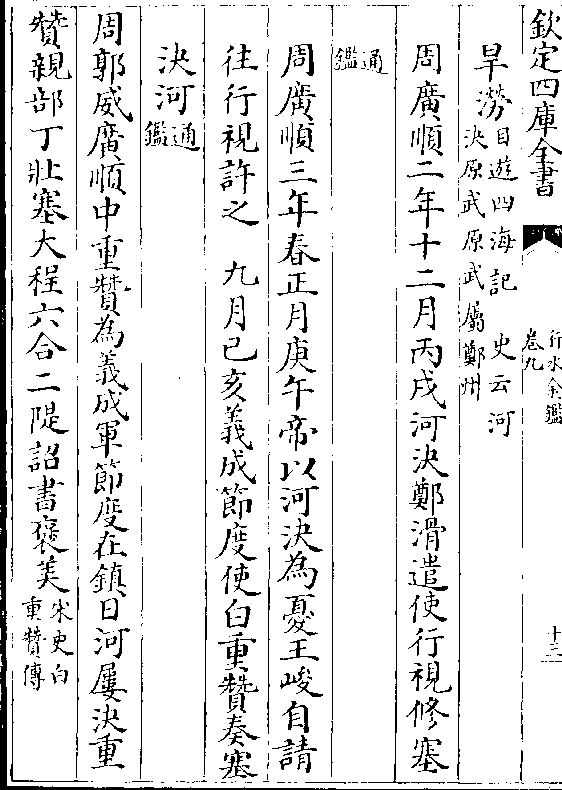 欽定四庫全書
行水金鑑
卷九
十三
旱澇目遊四海記 史云河
決原武原武屬鄭州
周廣順二年十二月丙戌河決鄭滑遣使行視修塞
通
鑑
周廣順三年春正月庚午帝以河決為憂王峻自請
往行視許之 九月己亥義成節度使白重贊奏塞
決河通
鑑
周郭威廣順中重贊為義成軍節度在鎮日河屢決重
贊親部丁壯塞大程六合二隄詔書褒美宋史白
重贊傳